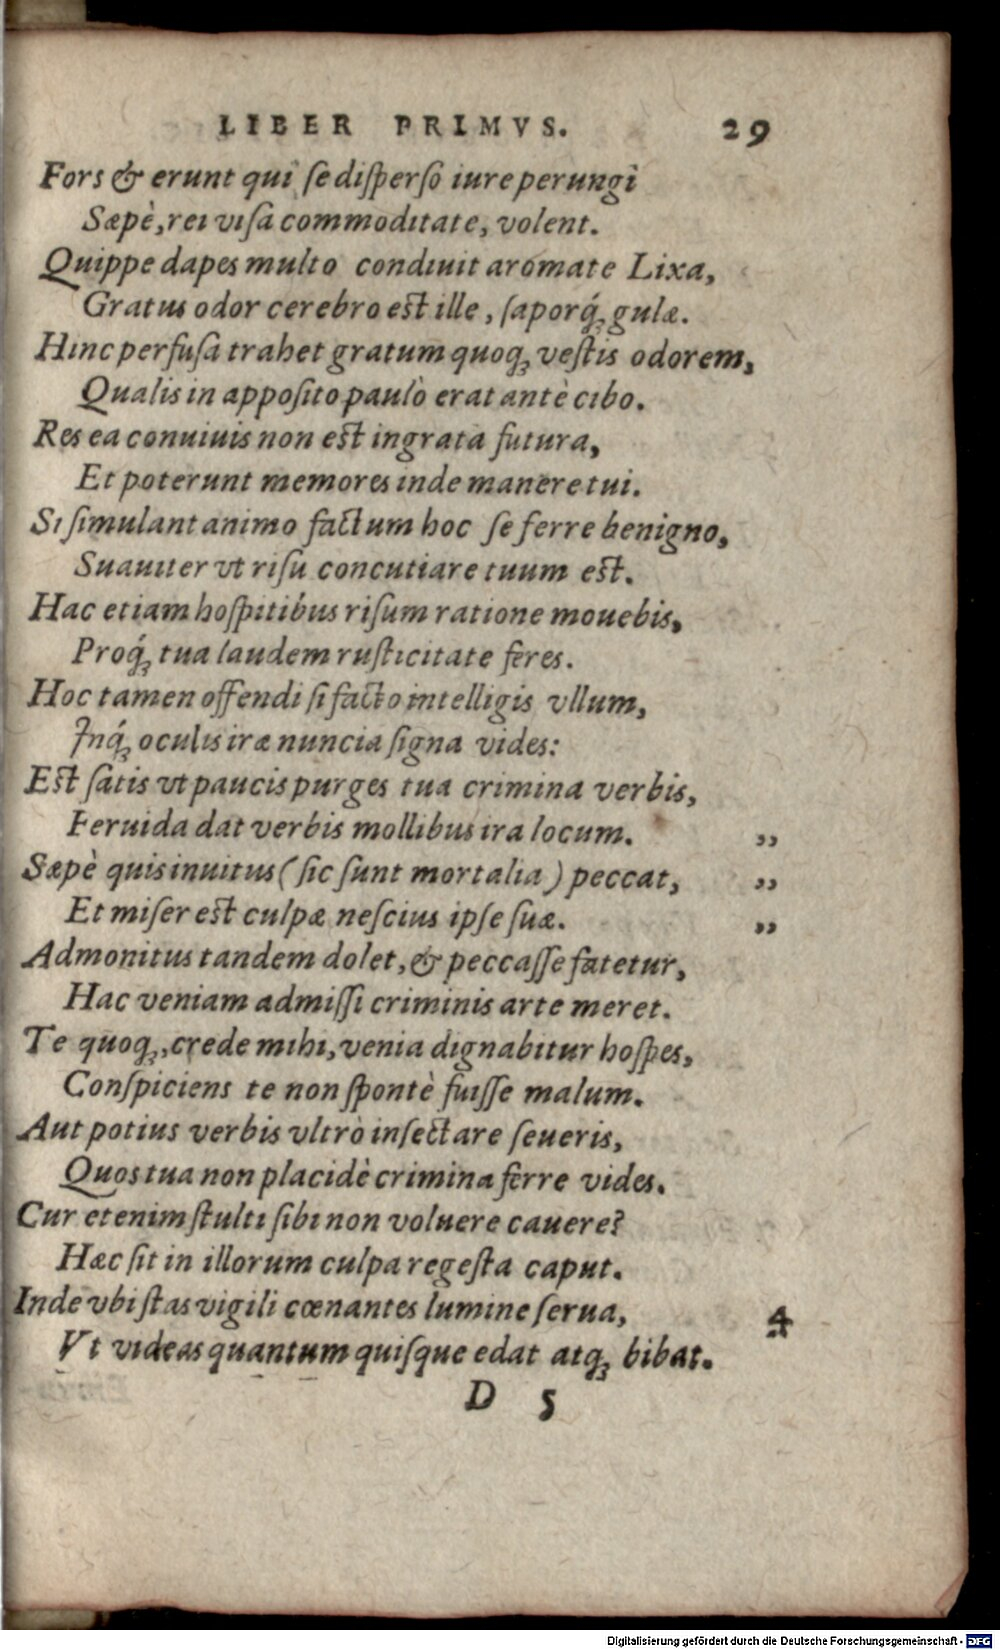 LIBER PRIMVS. 29
Fors & erunt qui se disperso iure perungi
Sæpè, rei visa commoditate, volent.
Quippe dapes multo condiuit aromate Lixa,
Gratus odor cerebro est ille, saporq́ꝫ gulæ.
Hinc perfusa trahet gratum quoqꝫ vestis odorem,
Qualis in apposito paulò erat antè cibo.
Res ea conuiuis non est ingrata futura,
Et poterunt memores inde manere tui.
Si simulant animo factum hoc se ferre benigno,
Suauiter vt risu concutiare tuum est.
Hac etiam hospitibus risum ratione mouebis,
Proq́ꝫ tua laudem rusticitate feres.
Hoc tamen offendi si facto intelligis vllum,
Inq́ꝫ oculis iræ nuncia signa vides:
Est satis vt paucis purges tua crimina verbis,
Feruida dat verbis mollibus ira locum. ,,
Sæpè quis inuitus (sic sunt mortalia) peccat, ,,
Et miser est culpæ nescius ipse suæ. ,,
Admonitus tandem dolet, & peccasse fatetur,
Hac veniam admissi criminis arte meret.
Te quoqꝫ, crede mihi, venia dignabitur hospes,
Conspiciens te non spontè fuisse malum.
Aut potius verbis vltrò insectare seueris,
Quos tua non placidè crimina ferre vides.
Cur etenim stulti sibi non voluere cauere?
Hæc sit in illorum culpa regesta caput.
Inde vbi stas vigili cœnantes lumine serua, 4
Vt videas quantum quisque edat atqꝫ bibat.
D 5
Digitalisierung gefördert durch die Deutsche Forschungsgemeinschaft - DFG